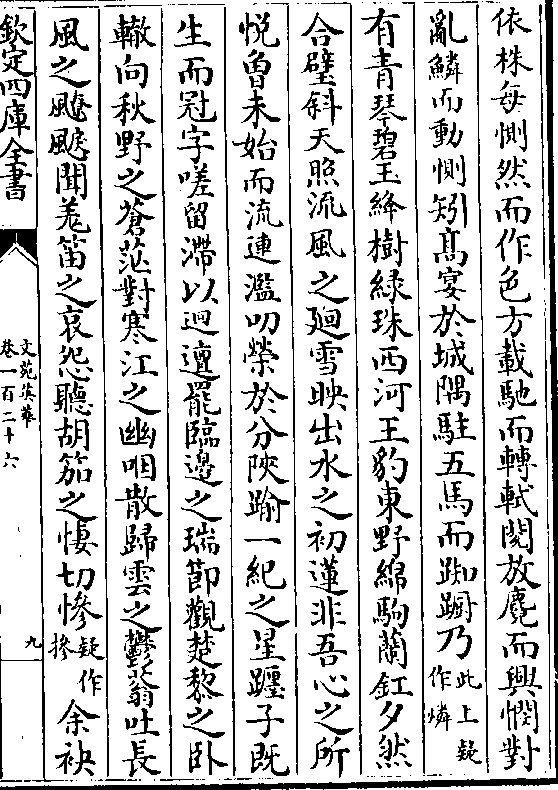 依株每惻然而作色方載馳而轉軾閔放麑而興憫對
亂鱗而動惻矧髙宴於城隅駐五馬而踟蹰乃此上疑作憐
有青琴碧玉絳樹緑珠西河王豹東野綿駒蘭釭夕然
合璧斜天照流風之廻雪映出水之初蓮非吾心之所
悦曽未始而流連濫叨榮於分陜踰一紀之星躔子既
生而冠字嗟留滯以迴邅罷臨邊之瑞節觀楚黎之卧
轍向秋野之蒼茫對寒江之幽咽散歸雲之鬱蓊吐長
風之飉颸聞羗笛之哀怨聽胡笳之悽切慘疑作摻余袂
欽定四庫全書
文苑英華
卷一百二十六
九